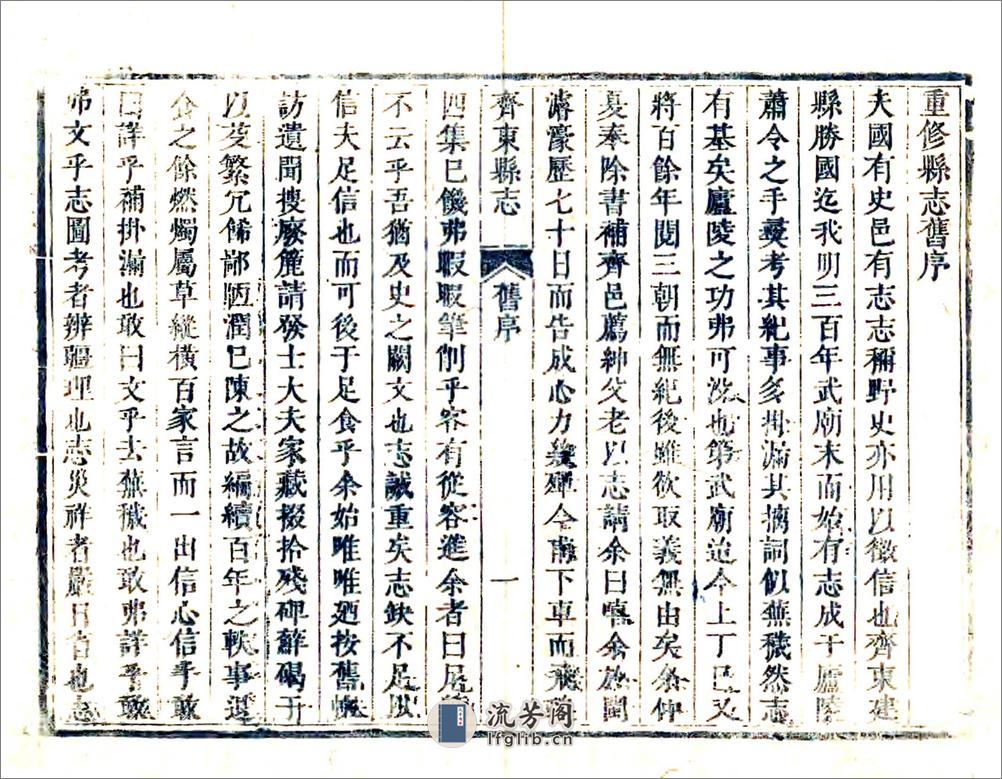 重修縣志舊序
夫國有史邑有志志稱野史亦用以徵信也齊東建
縣勝國迄我明三百年武廟末而始有志成于廬陵
蕭令之手蕘考其紀事多掛漏其摛詞似蕪穢然志
有基矣廬陵之功弗可沒也第武廟迨今上丁巳又
將百餘年閱三朝而無紀後雖欲取義無由矣余仲
夏奉除書補齊邑薦紳父老以志請余曰嘻余放閩
濬濠歷七十日而告成心力幾殫今甫下車而飛
齊東縣志
舊序
一
四集已饑弗暇暇筆削乎客有從容進余者曰尼
不云乎吾猶及史之闕文也志誠重矣志缺不足以
信夫足信也而可後于足食乎余始唯唯廼按舊
訪遺聞搜廢簏請發士大夫家藏掇拾殘碑蘚碣于
以芟繁冗俙鄙恒潤已陳之故編續百年之軼事退
食之餘燃燭屬草縱橫百家言而一出信心信乎敢
曰詳乎補掛漏也敢曰文乎去蕪穢也敢弗詳乎敢
弗文乎志圖考者辨疆理也志災祥者嚴日百也志
流芳阁
lfglib.cn